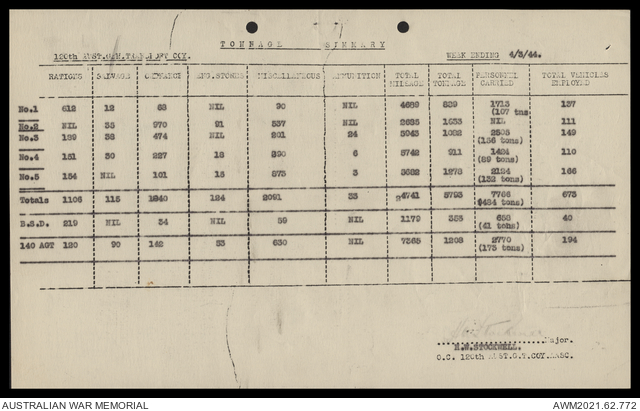 TONNAGE SUMMARY
120th AUST.GEN.TRANSPORT COY. WEEK ENDING 4/3/44.
RATIONS SALVAGE ORDNANCE ENG.STORES MISCELLANEOUS AMMUNITION TOTAL MILEAGE TOTAL TONNAGE PERSONNEL CARRIED TOTAL VEHICLES EMPLOYED
No.1 612 12 68 NIL 90 NIL 4689 839 1713 137
(107 tns
No.2 NIL 35 970 91 537 NIL 2685 1633 NIL 111
No.3 189 38 474 NIL 201 24 5943 1082 2505 149
(156 tons)
No.4 151 30 227 18 390 6 5742 911 1424 110
(89 tons)
No.5 154 NIL 101 15 873 3 1278 2124 166
(132 tons)
Totals 1106 115 1840 124 2091 33 4741 5793 7766 673
(484 tons)
B.S.D. 219 NIL 34 NIL 59 NIL 1179 353 658 40
(41 tons)
140 AGT 120 90 142 53 630 NIL 7365 1208 2770 194
(173 tons)
Major.
H.B.STOCKWELL.
O.C. 120th AUST.G.T.COY.AASC.
AUSTRALIAN WAR MEMORIAL AWM2021.62.772